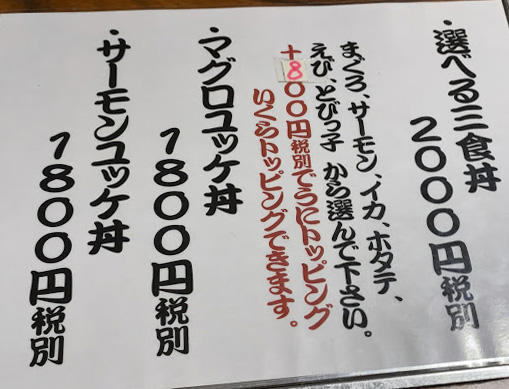 ・選べる三食丼
2000円税別
まぐろ、サーモン、イカ、ホタテ、
えび、とびっ子 から選んで下さい。
+800円税別でうにトッピング
いくらトッピングできます。
・マグロユッケ丼
1800円税別
・サーモンユッケ丼
1800円税別